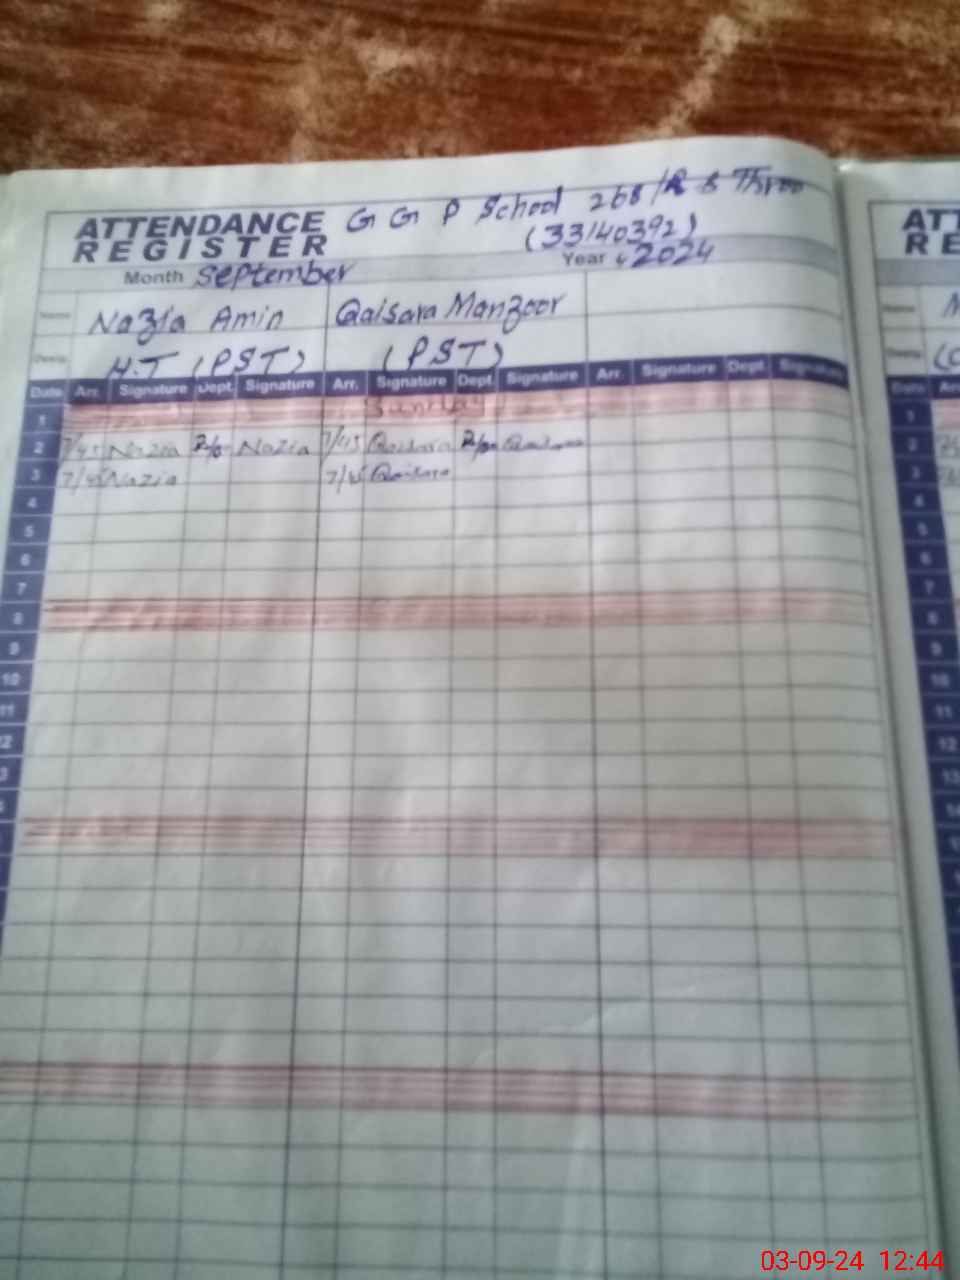 ATTENDANCE REGISTER
G G P School 268/R B Three
(33140392)
Month September Year 2024
Name Nazia Amin Qaisara Manzoor
Desig. H.T (PST) (PST)
Date Arr. Signature Dept. Signature Arr. Signature Dept. Signature Arr. Signature Dept. Signature
1 Sunday
2 7/45 Nazia 2/00 Nazia 7/45 Qaisara 2/00 Qaisara
3 7/45 Nazia 7/45 Qaisara
4
5
6
7
8
9
10
11
12
13
ATT
RE
Name
Desig.
Date
1
2
3
4
5
6
7
8
9
10
11
12
13
14
03-09-24 12:44